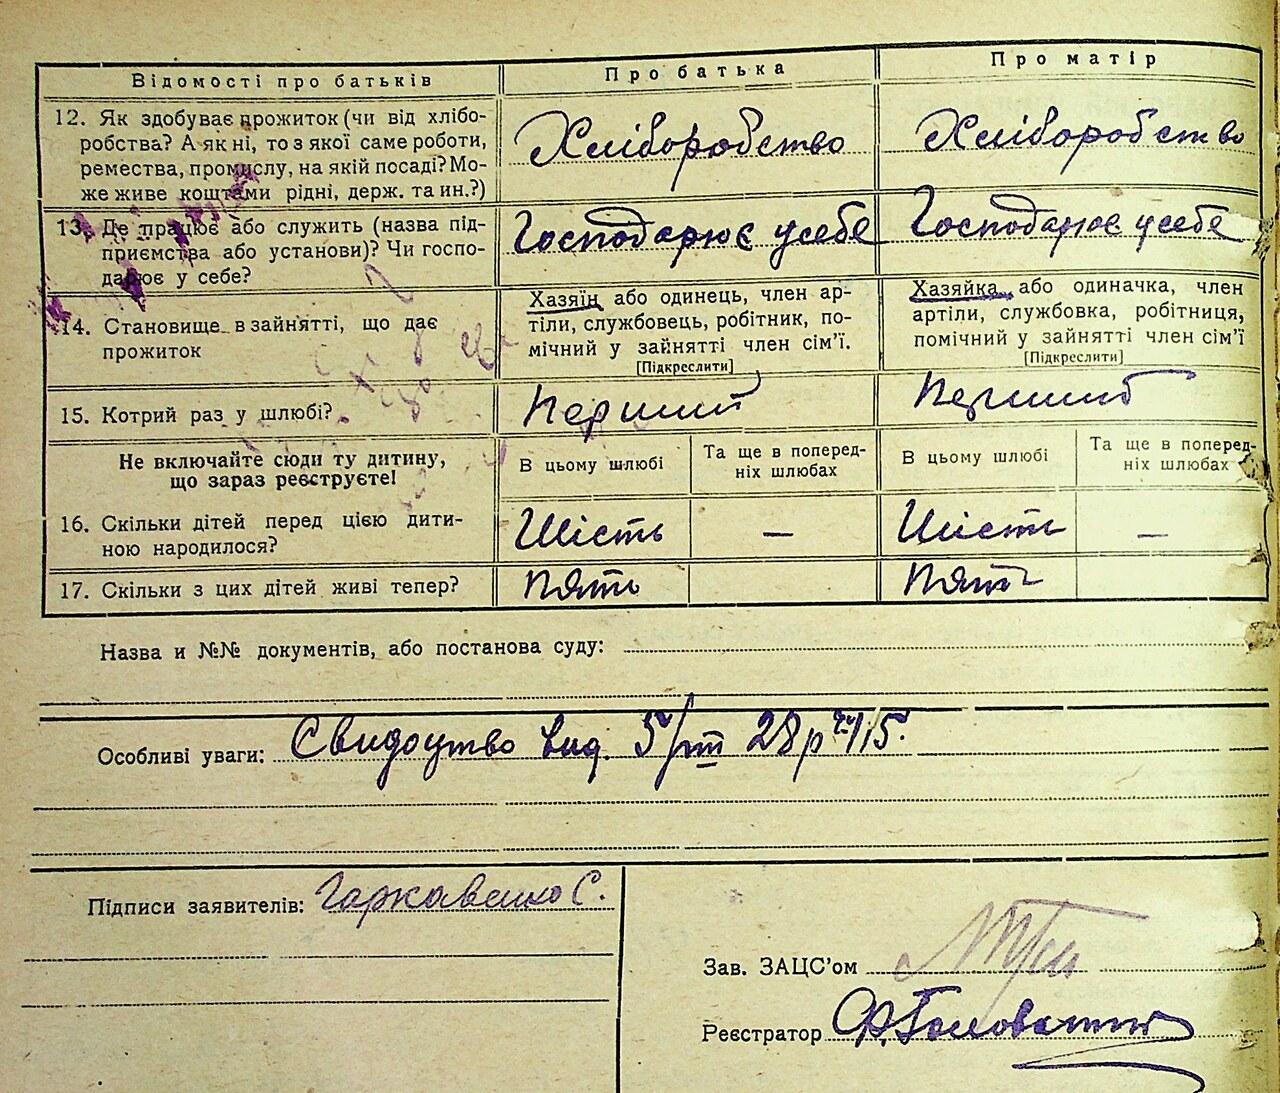 Відомості про батьків
Про батька
Про матір
12. Як здобуває прожиток (чи від хлібо-
робства? А як ні, то з якої саме роботи,
ремества, промислу, на якій посаді? Мо-
же живе коштами рідні, держ. та ин.?)
Хліборобство
Хліборобство
13. Де працює або служить (назва під-
приємства або установи)? Чи госпо-
дарює у себе?
Господарює у себе
Господарює у себе
14. Становище в зайнятті, що дає
прожиток
Хазяїн або одинець, член ар-
тіли, службовець, робітник, по-
мічний у зайнятті член сім'ї.
[Підкреслити]
Хазяйка або одиначка, член
артіли, службовка, робітниця,
помічний у зайнятті член сім'ї
[Підкреслити]
15. Котрий раз у шлюбі?
Перший
Перший
Не включайте сюди ту дитину,
що зараз реєструєте!
В цьому шлюбі
Та ще в поперед-
ніх шлюбах
В цьому шлюбі
Та ще в поперед-
ніх шлюбах
16. Скільки дітей перед цією дити-
ною народилося?
Шість
—
Шість
—
17. Скільки з цих дітей живі тепер?
Пять
Пять
Назва и №№ документів, або постанова суду:
Особливі уваги: Свидоцтво вид. 5/III 28 р
Підписи заявителів: Гаркавенко С.
Зав. ЗАЦС'ом
Реєстратор